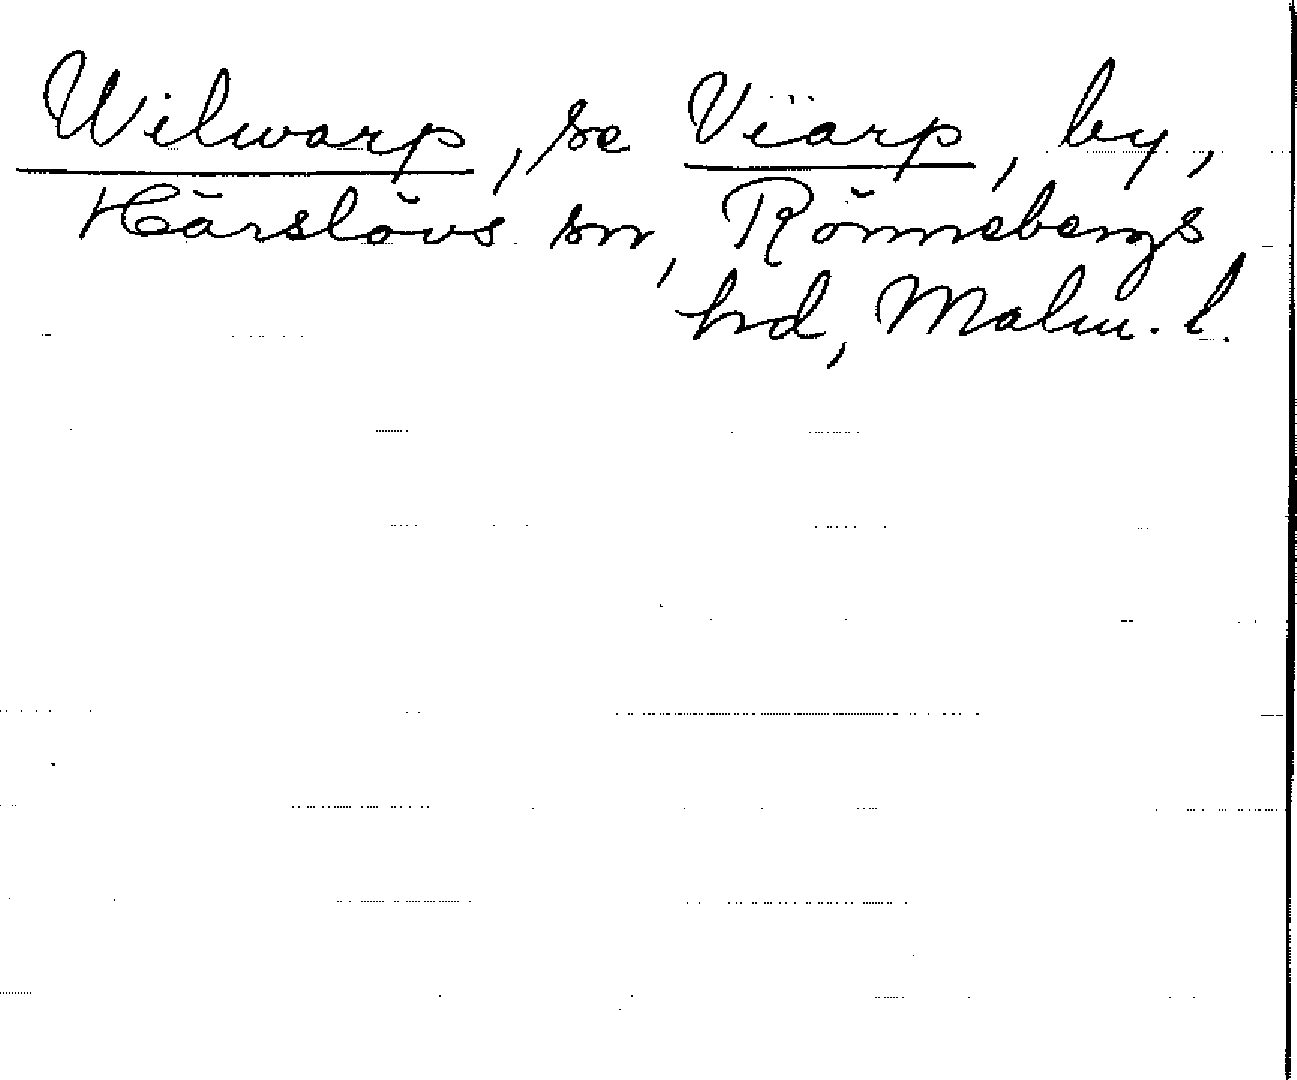 Wilwarp, se Viarp, by,
Härslövs sn, Rönnebergs
hd, Malm. l.